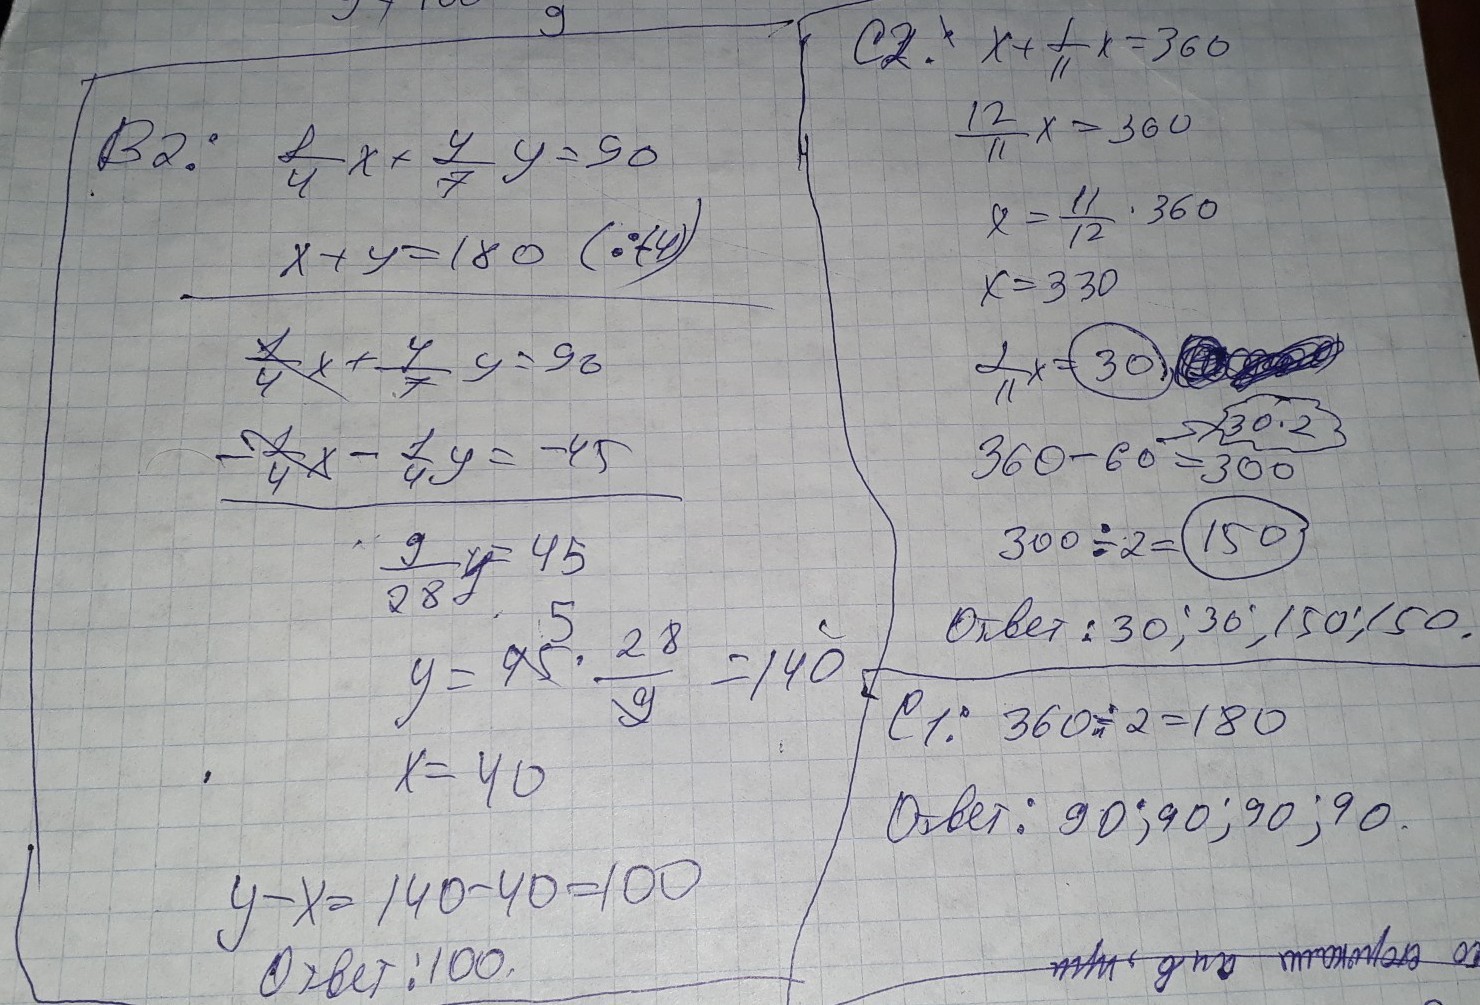 9
B2: 1/4 x + 4/7 y = 90
x + y = 180 (:(-4))
1/4 x + 4/7 y = 90
- 1/4 x - 1/4 y = -45
9/28 y = 45
5
y = 45 · 28/9 = 140
x = 40
y - x = 140 - 40 = 100
Ответ: 100.
C2: x + 1/11 x = 360
12/11 x = 360
x = 11/12 · 360
x = 330
1/11 x = 30
→ 30·2
360 - 60 = 300
300 ÷ 2 = 150
Ответ: 30; 30; 150; 150.
C1: 360 ÷ 2 = 180
Ответ: 90; 90; 90; 90.